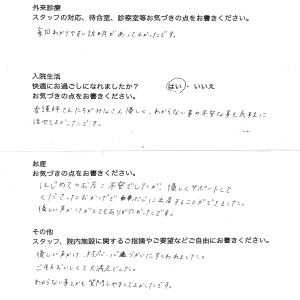 外来診療
スタッフの対応、待合室、診察室等お気づきの点をお書きください。
毎回わかりやすい説明があってよかったです。
入院生活
快適にお過ごしになれましたか？ はい・いいえ
お気づきの点をお書きください。
看護師さんたちがみなさん優しく、わからない事や不安な事も気軽に
話せてよかったです。
お産
お気づきの点をお書きください。
はじめてのお産で不安でしたが、優しくサポートして
くださったおかげで に出産することができました。
優しい声かけがとてもありがたかったです。
その他
スタッフ、院内施設に関するご指摘やご要望などご自由にお書きください。
優しい声かけ、対応 にすくわれました。
ごはんもおいしくて大満足でした。
わからないことも質問しやすくてよかったです。